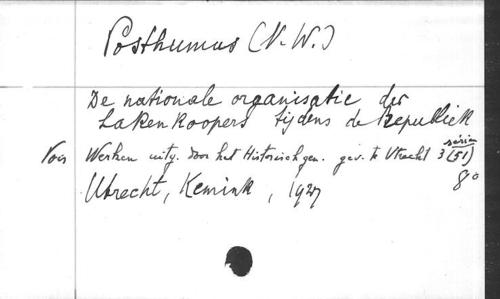 Posthumus (N.W.)
De nationale organisatie der
Lakenkoopers tijdens de Republiek
Werken uitg. door het Historisch gen. gev. te Utrecht 3 série (51)
8º
Utrecht, Kemink, 1927